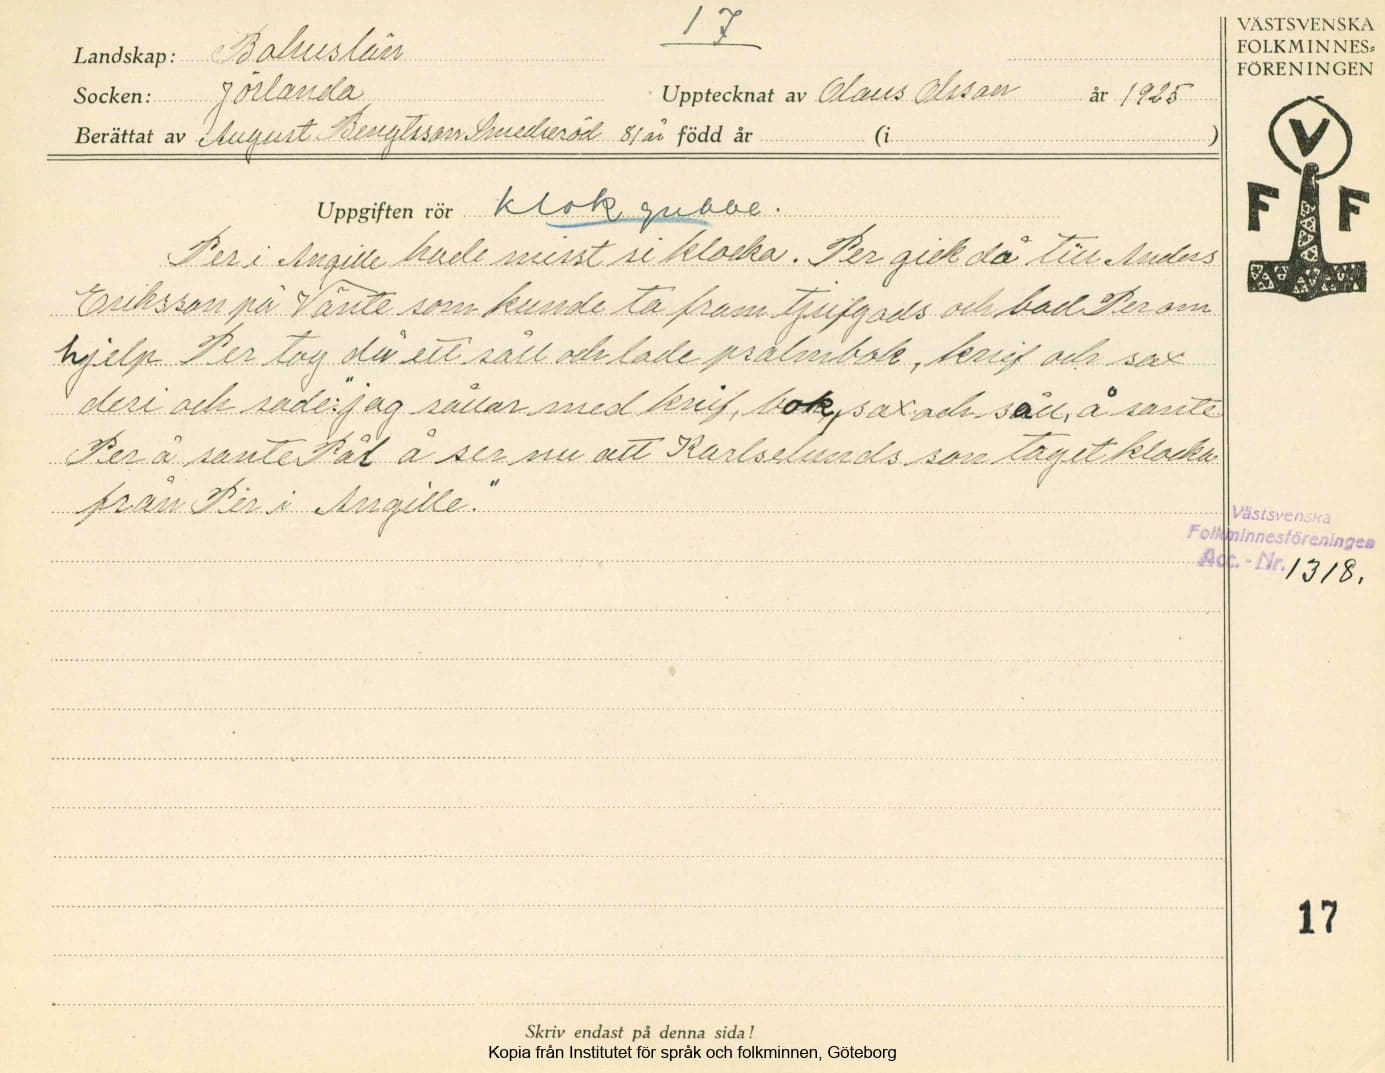 17
Landskap: Bohuslän
Socken: Jörlanda
Upptecknat av Olaus Olsson år 1925
Berättat av August Bengtsson Smedseröd 81 år född år (i )
Uppgiften rör klok gubbe.
Per i Angille hade mist si klocka. Per gick då till Anders
Eriksson på Vänte som kunde ta fram tjufgods och bad Per om
hjelp Per tog då ett såll och lade psalmbok, knif och sax
deri och sade: "jag sållar med knif, bok, sax och såll, å sante
Per å sante Pål å ser nu att Karlselunds son taget klocka
från Per i Angille."
VÄSTSVENSKA
FOLKMINNES=
FÖRENINGEN
V
F F
Västsvenska
Folkminnesföreningen
Acc. - Nr. 1318.
17
Skriv endast på denna sida!
Kopia från Institutet för språk och folkminnen, Göteborg